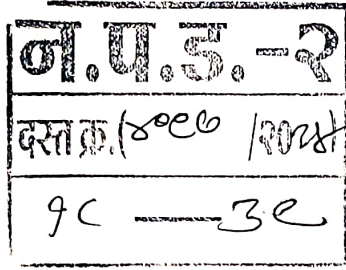 न.प.ड.-२
दस्त क्र.(४०९७ /२०२४)
१८ — ३९